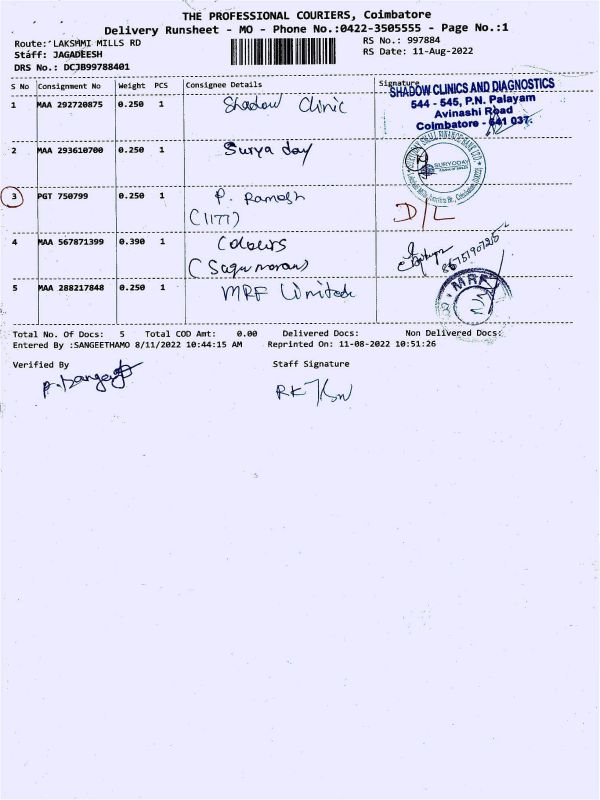 THE PROFESSIONAL COURIERS, Coimbatore
Delivery Runsheet - MO - Phone No.:0422-3505555 - Page No.:1
Route: LAKSHMI MILLS RD
RS No.: 997884
Staff: JAGADEESH
RS Date: 11-Aug-2022
DRS No.: DCJB99788401
S No Consignment No Weight PCS Consignee Details Signature
1 MAA 292720875 0.250 1 Shadow Clinic
SHADOW CLINICS AND DIAGNOSTICS
544 - 545, P.N. Palayam
Avinashi Road
Coimbatore - 641 037.
2 MAA 293610700 0.250 1 Surya day
SURYODAY
3 PGT 750799 0.250 1 P. Ramesh
(1177)
D/L
4 MAA 567871399 0.390 1 Colours
5 MAA 288217848 0.250 1 MRF Limited
MRF
Total No. Of Docs: 5 Total COD Amt: 0.00 Delivered Docs: Non Delivered Docs:
Entered By :SANGEETHAMO 8/11/2022 10:44:15 AM Reprinted On: 11-08-2022 10:51:26
Verified By Staff Signature